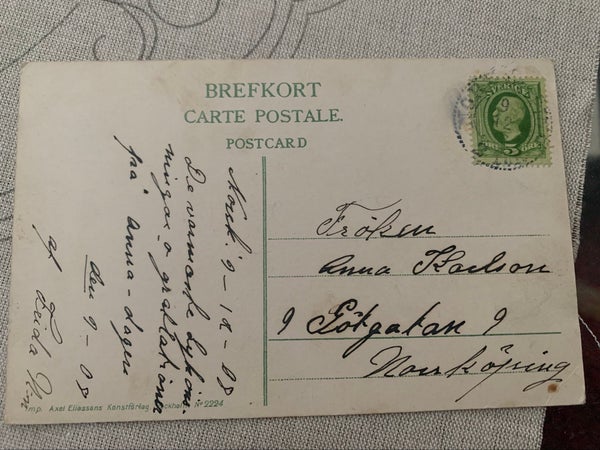 BREFKORT
CARTE POSTALE.
POSTCARD
SVERIGE
5
9
Norrk. 9-12-08
De varmaste lycköns-
ningar o gratulationer
på Anna-dagen
den 9-08
af Frida
Fröken
Anna Karlson
9 Götgatan 9
Norrköping
Imp. Axel Eliassons Konstförlag Stockholm Nº 2224